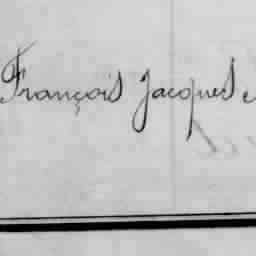 François Jacques